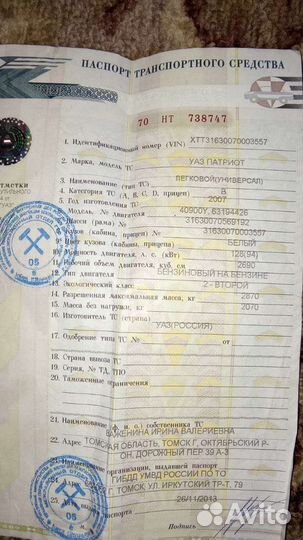 ПАСПОРТ ТРАНСПОРТНОГО СРЕДСТВА
70 НТ 738747
1. Идентификационный номер (VIN) XTT31630070003557
2. Марка, модель ТС УАЗ ПАТРИОТ
3. Наименование (тип ТС) ЛЕГКОВОЙ(УНИВЕРСАЛ)
4. Категория ТС (А, В, С, D, прицеп) В
5. Год изготовления ТС 2007
6. Модель, № двигателя 40900Y, 63194426
7. Шасси (рама) № 31630070569192
8. Кузов (кабина, прицеп) № 31630070003557
9. Цвет кузова (кабины, прицепа) БЕЛЫЙ
10. Мощность двигателя, л. с. (кВт) 128(94)
11. Рабочий объем двигателя, куб. см 2690
12. Тип двигателя БЕНЗИНОВЫЙ НА БЕНЗИНЕ
13. Экологический класс 2 - ВТОРОЙ
14. Разрешенная максимальная масса, кг 2870
15. Масса без нагрузки, кг 2070
16. Изготовитель ТС (страна) УАЗ(РОССИЯ)
17. Одобрение типа ТС №
18. Страна вывоза ТС
19. Серия, № ТД, ТПО
20. Таможенные ограничения
21. Наименование (ф. и. о.) собственника ТС
ВАЖЕНИНА ИРИНА ВАЛЕРИЕВНА
22. Адрес ТОМСКАЯ ОБЛАСТЬ, ТОМСК Г, ОКТЯБРЬСКИЙ Р-ОН, ДОРОЖНЫЙ ПЕР 39 А-3
23. Наименование организации, выдавшей паспорт
ГИБДД УМВД РОССИИ ПО ТО
24. Адрес Г. ТОМСК, УЛ. ИРКУТСКИЙ ТР-Т, 79
26/11/2013
Подпись
Avito